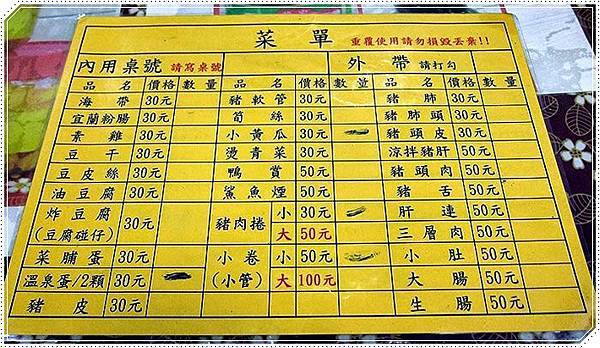 菜單 重覆使用請勿損毀丟棄!!
內用桌號 請寫桌號 外帶 請打勾
品名 價格 數量 品名 價格 數量 品名 價格 數量
海帶 30元 豬軟管 30元 豬肺 30元
宜蘭粉腸 30元 筍絲 30元 豬肺頭 30元
素雞 30元 小黃瓜 30元 豬頭皮 30元
豆干 30元 燙青菜 30元 涼拌豬肝 50元
豆皮絲 30元 鴨賞 50元 豬頭肉 50元
油豆腐 30元 鯊魚煙 50元 豬舌 50元
炸豆腐(豆腐碰仔) 30元 豬肉捲 小 30元 肝連 50元
大 50元 三層肉 50元
菜脯蛋 30元 小卷(小管) 小 50元 小肚 50元
溫泉蛋/2顆 30元 大 100元 大腸 50元
豬皮 30元 生腸 50元